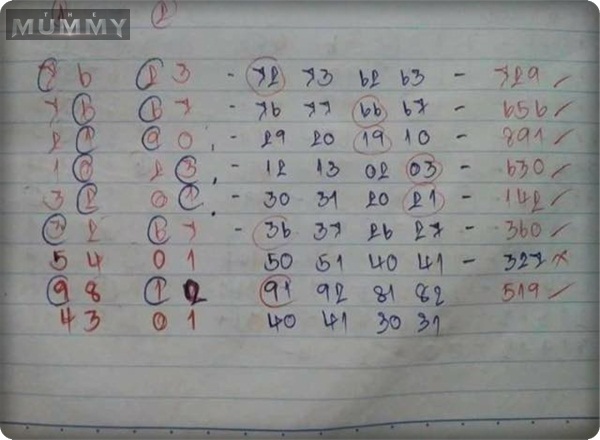 THE
MUMMY
1 2
7 6 2 3 - 72 73 62 63 - 729 ✓
7 6 6 7 - 76 77 66 67 - 656 ✓
2 1 9 0 - 29 20 19 10 - 891 ✓
1 0 2 3 - 12 13 02 03 - 630 ✓
3 2 0 1 - 30 31 20 21 - 142 ✓
3 2 6 7 - 36 37 26 27 - 360 ✓
5 4 0 1 50 51 40 41 - 327 ×
9 8 1 2 91 92 81 82 519 ✓
4 3 0 1 40 41 30 31